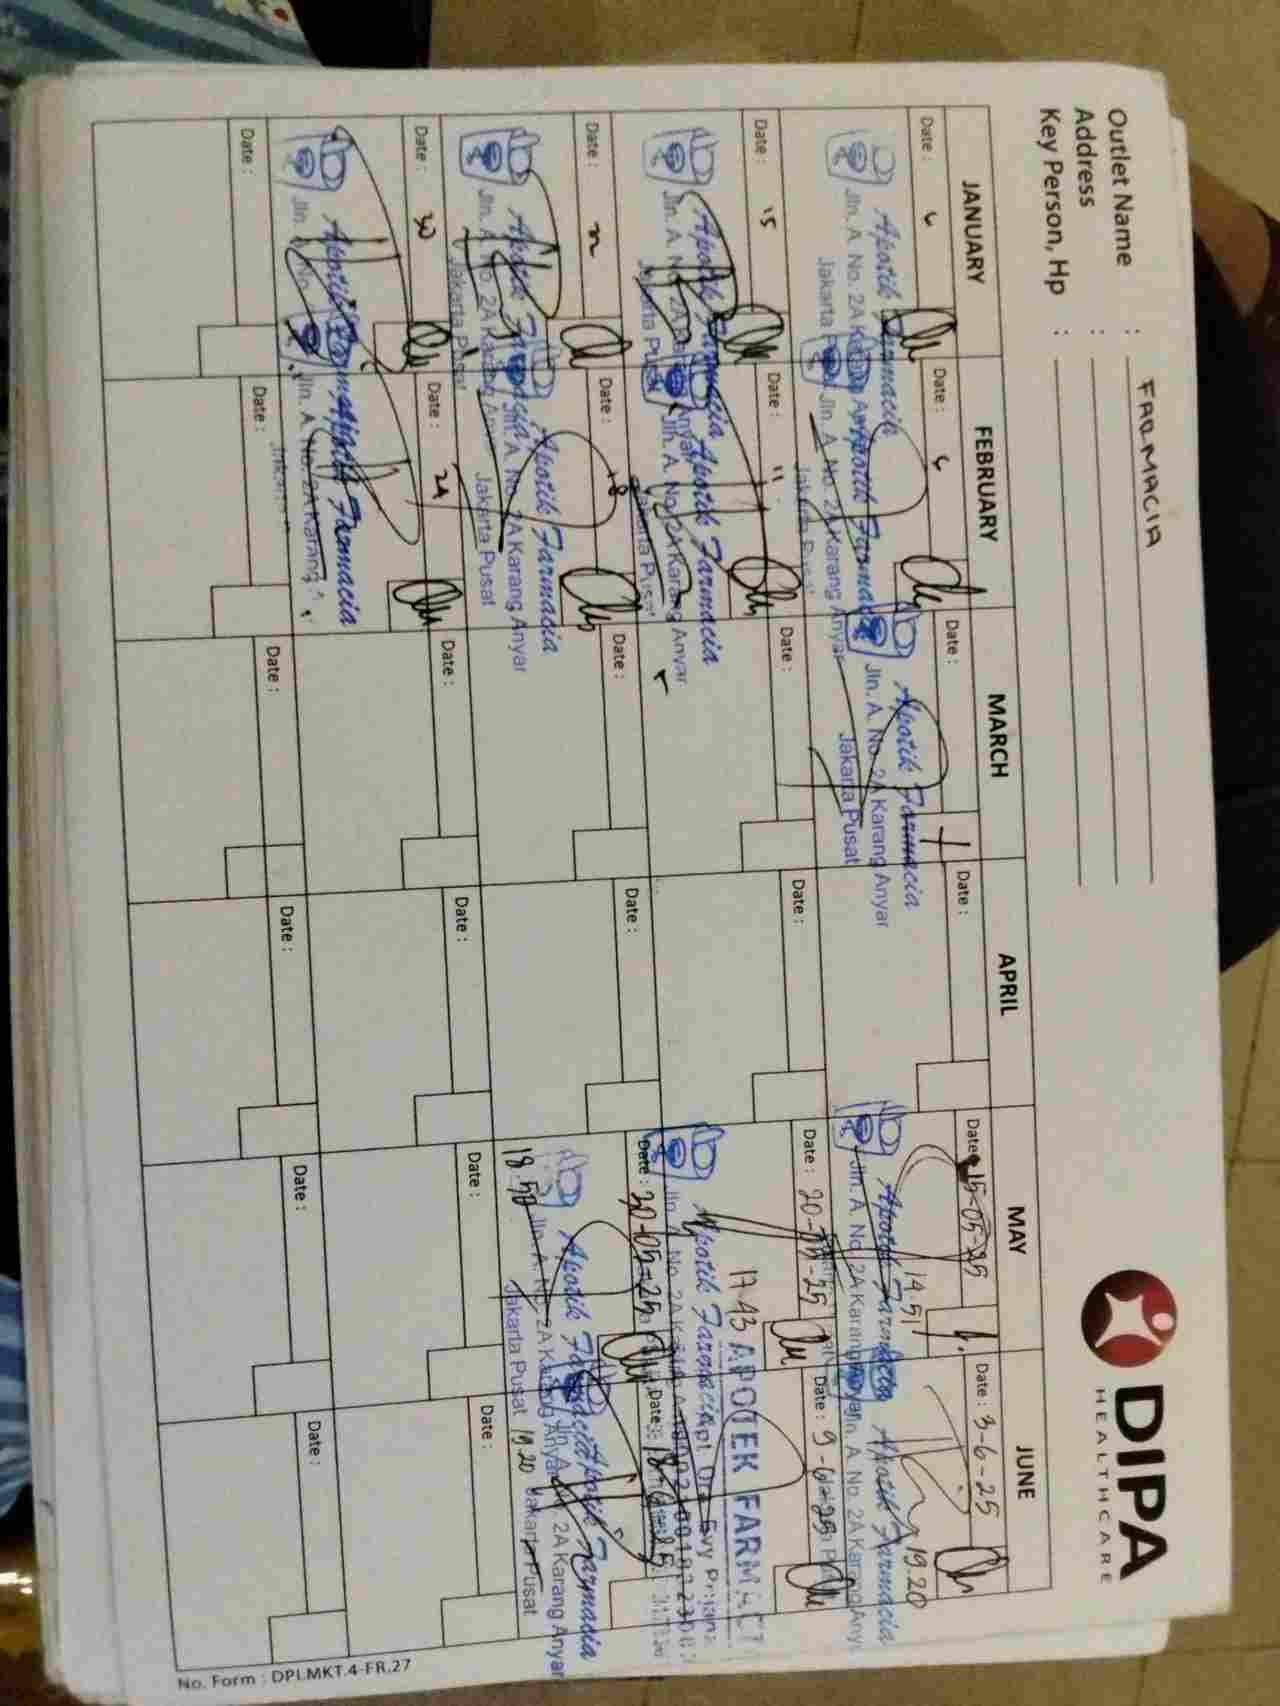 Outlet Name : FARMACIA
Address :
Key Person, Hp :
DIPA
HEALTHCARE
JANUARY
FEBRUARY
MARCH
APRIL
MAY
JUNE
Date : 6
Date : 6
Date :
Date :
Date : 15-05-25
Date : 3-6-25
14.51
19.20
Apotik Farmacia
Jln. A. No. 2A Karang Anyar
Jakarta Pusat
Apotik Farmacia
Jln. A. No. 2A Karang Anyar
Jakarta Pusat
Apotik Farmacia
Jln. A. No. 2A Karang Anyar
Jakarta Pusat
Apotik Farmacia
Jln. A. No. 2A Karang Anyar
Apotik Farmacia
Jln. A. No. 2A Karang Anyar
Date : 15
Date : 11
Date :
Date :
Date : 20-05-25
Date : 9-6-25
17.43
APOTEK FARMACI
Apotik Farmacia
Jln. A. No. 2A Karang Anyar
Jakarta Pusat
Apotik Farmacia
Jln. A. No. 2A Karang Anyar
Jakarta Pusat
Apotik Farmacia
Jln. A. No. 2A
Date : 22
Date : 18
Date :
Date :
Date : 30-05-25
Date :
Apotik Farmasia
Jln. A. No. 2A Karang Anyar
Jakarta Pusat
Apotik Farmasia
Jln. A. No. 2A Karang Anyar
Jakarta Pusat
18.50
Apotik Farmasia
Jln. A. No. 2A Karang Anyar
Jakarta Pusat
19.20
Apotik Farmasia
Jln. A. No. 2A Karang Anyar
Jakarta Pusat
Date : 30
Date : 24
Date :
Date :
Date :
Date :
Apotik Farmacia
Jln. A. No.
Apotik Farmacia
Jln. A. No. 2A Karang
Date :
Date :
Date :
Date :
Date :
Date :
No. Form : DPLMKT.4-FR.27